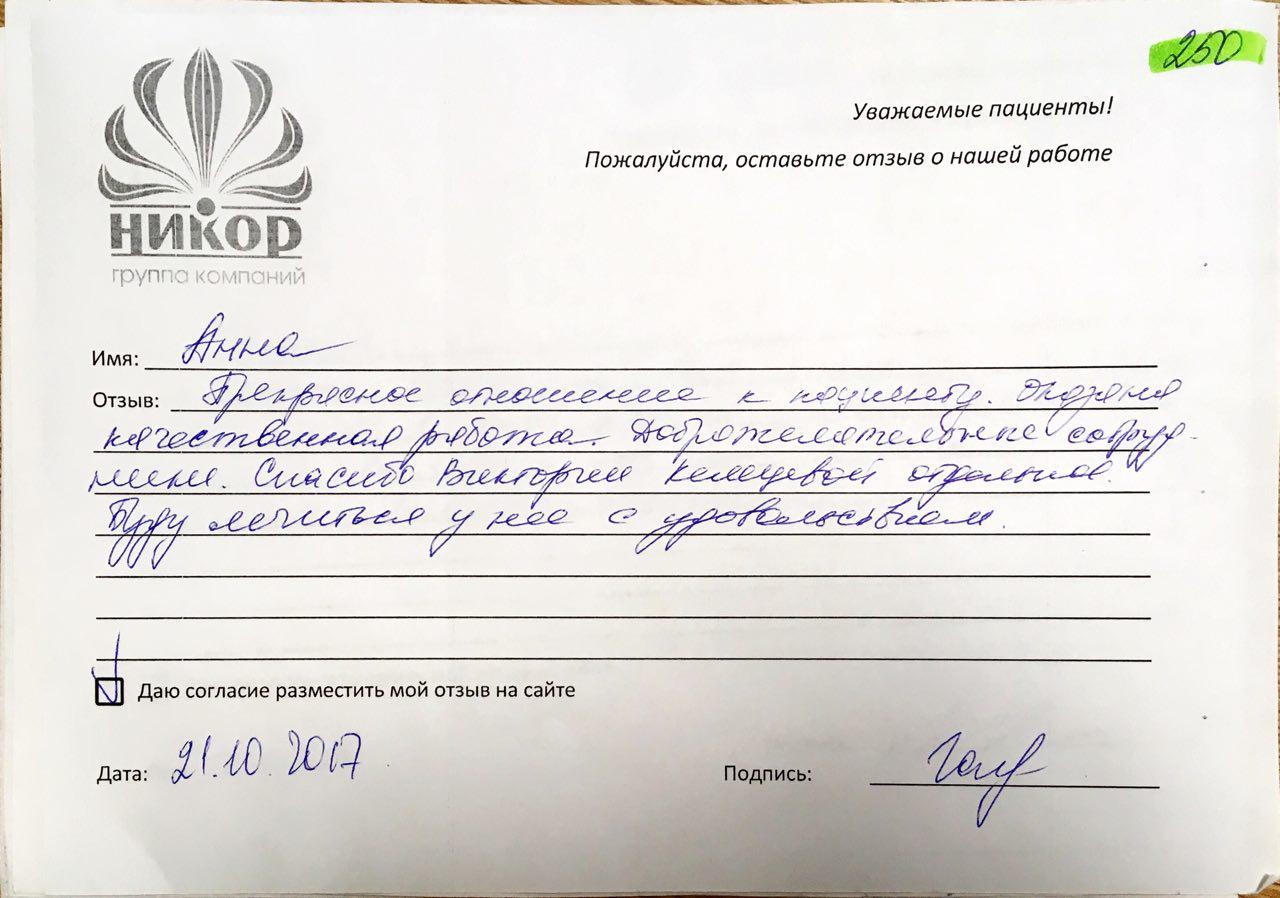 250
Уважаемые пациенты!
Пожалуйста, оставьте отзыв о нашей работе
НИКОР
группа компаний
Имя: Анна
Отзыв: Прекрасное отношение к пациенту.
качественная работа. Доброжелательные сотруд-
ники. Спасибо Виктории отдельное.
Буду лечиться у нее с удовольствием.
Даю согласие разместить мой отзыв на сайте
Дата: 21.10.2017
Подпись: